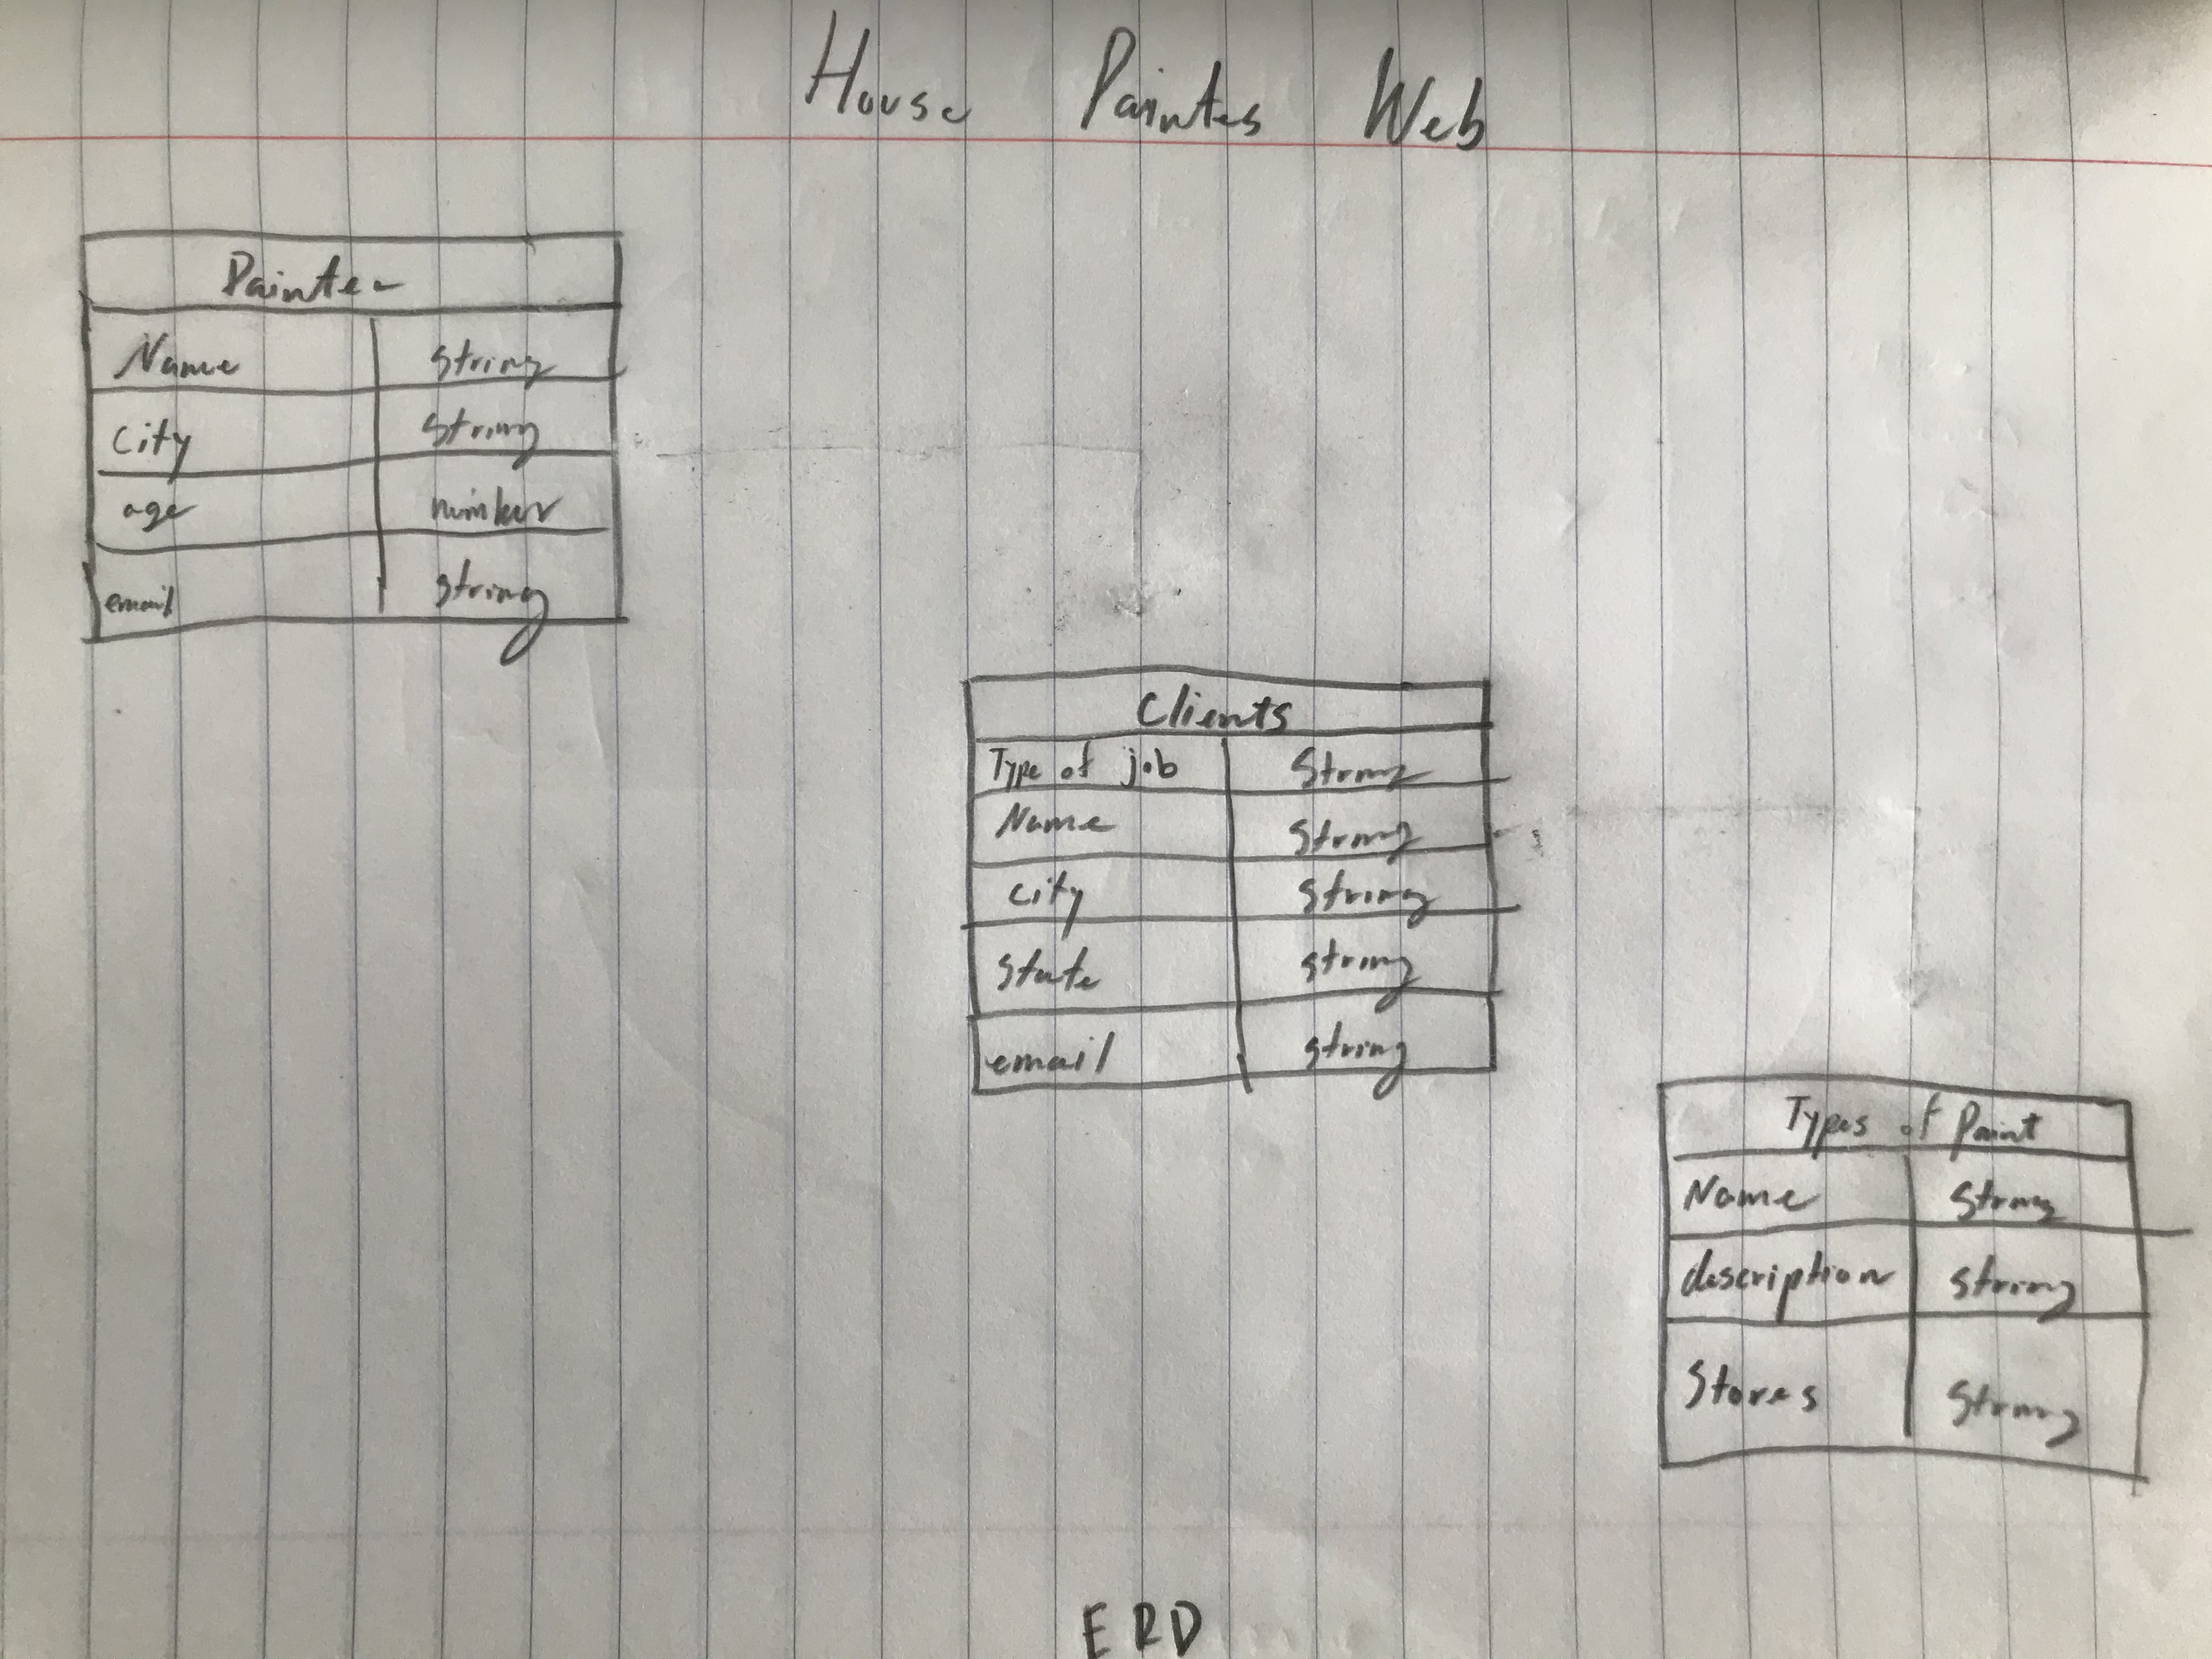 House Paintes Web
Painter
Name String
City String
age number
email string
Clients
Type of job String
Name String
city String
State string
email string
Types of Paint
Name String
description string
Stores String
ERD